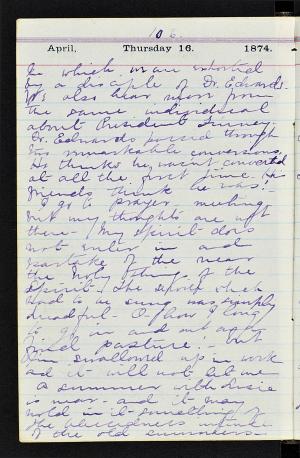 106.
April, Thursday 16. 1874.
in which we are exhorted
by a disciple of Dr. Edwards.
We also hear more from
the same individual
about President Finney.
Dr. Edwards passed through
two remarkable conversions.
He thinks he wasn't converted
at all the first time. His
friends think he was!
I go to prayer-meeting
but my thoughts are not
there - My spirit does
not enter in and
partake of the near
the holy things of the
Spirit. The
had to be sung was simply
dreadful - O how I long
to go in and out and
find pasture! - but
I'm swallowed up in work
and it will not let me
A summer with Susie
is near - and it may
hold in it something of
the blessedness
of the old summers -